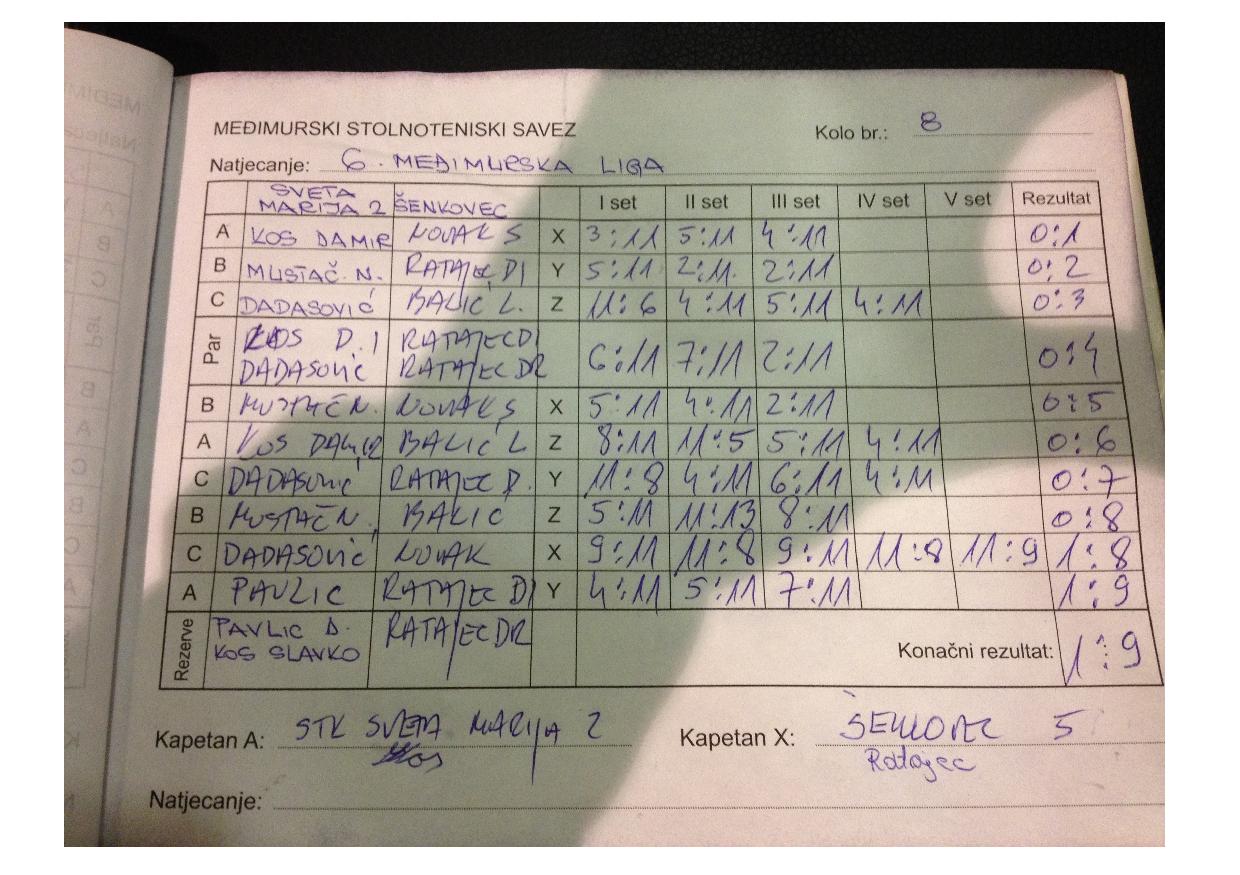 MEĐIMURSKI STOLNOTENISKI SAVEZ
Kolo br.: 8
Natjecanje: 6. MEĐIMURSKA LIGA
SVETA MARIJA 2 ŠENKOVEC I set II set III set IV set V set Rezultat
A KOS DAMIR NOVAK S X 3:11 5:11 4:11 0:1
B MUSTAČ N. RATAJEC DI Y 5:11 2:11 2:11 0:2
C DADASOVIĆ BALIĆ L. Z 11:6 4:11 5:11 4:11 0:3
Par KOS D. I RATAJEC DI 6:11 7:11 2:11 0:4
DADASOVIĆ RATAJEC DR
B MUSTAČ N. NOVAK S X 5:11 4:11 2:11 0:5
A KOS DAMIR BALIĆ L Z 8:11 11:5 5:11 4:11 0:6
C DADASOVIĆ RATAJEC D. Y 11:8 4:11 6:11 4:11 0:7
B MUSTAČ N. BALIĆ Z 5:11 11:13 8:11 0:8
C DADASOVIĆ NOVAK X 9:11 11:8 9:11 11:8 11:9 1:8
A PAVLIC RATAJEC DI Y 4:11 5:11 7:11 1:9
Rezerve PAVLIC D. RATAJEC DR
KOS SLAVKO
Konačni rezultat: 1:9
Kapetan A: STK SVETA MARIJA 2
Kos
Kapetan X: ŠENKOVEC 5
Ratajec
Natjecanje: